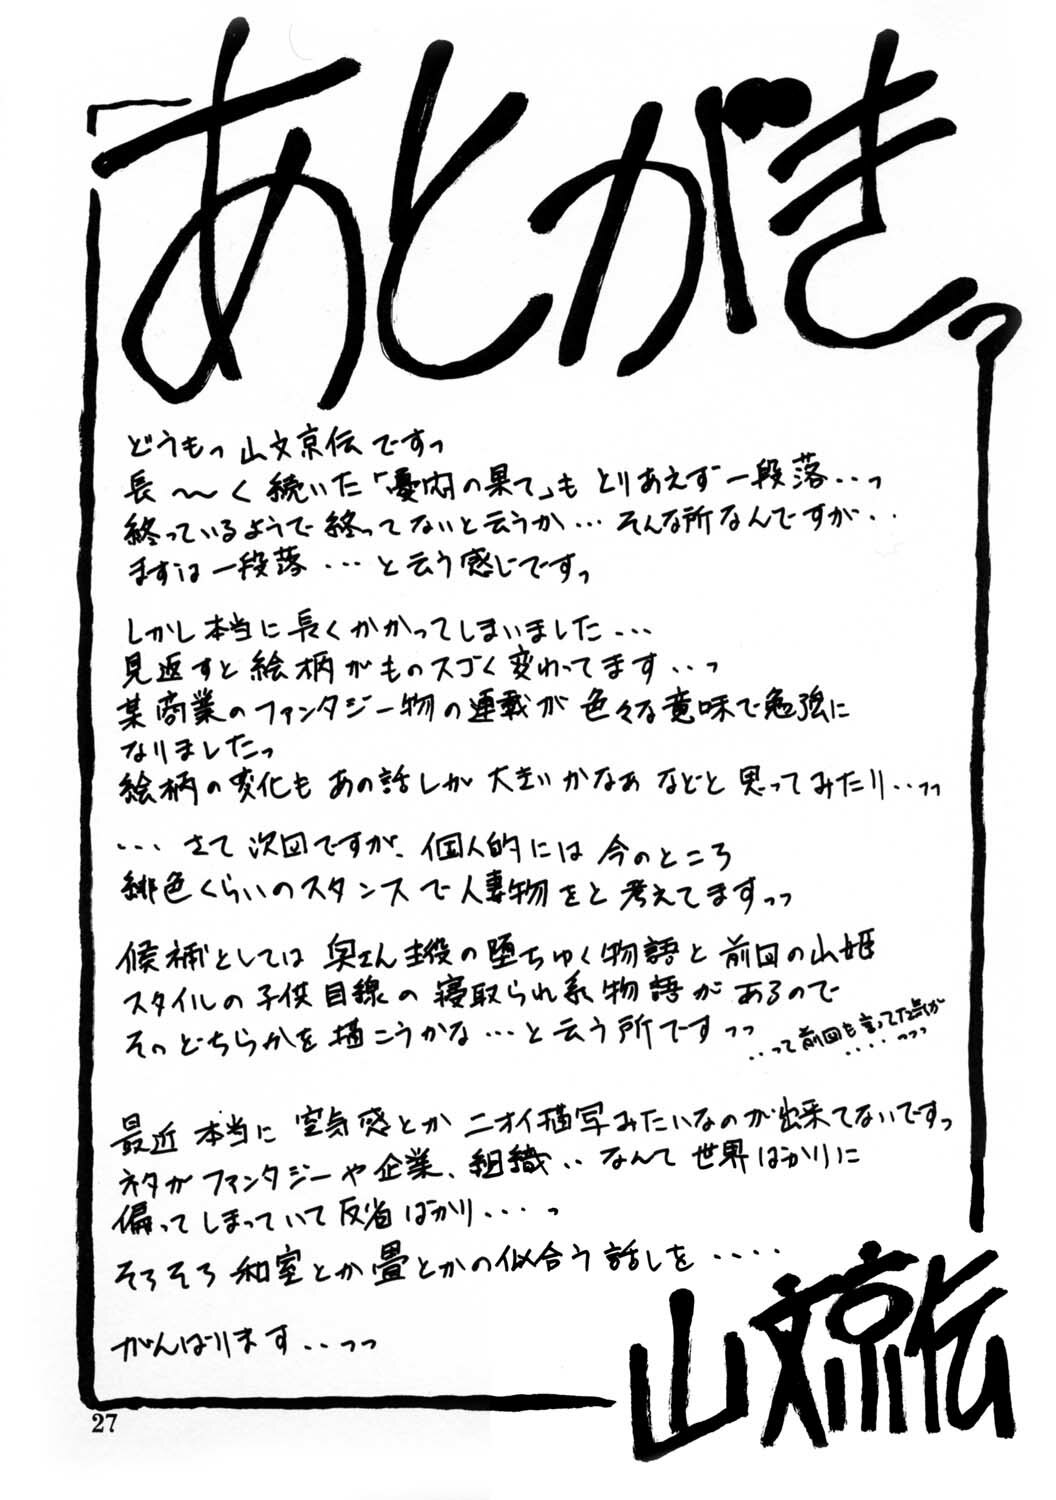 あとがきっ
どうもっ 山文京伝ですっ
長〜く続いた「憂肉の果て」も とりあえず一段落‥っ
終っているようで終ってないと云うか… そんな所なんですが‥
まずは一段落…と云う感じですっ
しかし本当に長くかかってしまいました…
見返すと絵柄がものスゴく変わってます‥っ
某商業のファンタジー物の連載が色々な意味で勉強に
なりましたっ
絵柄の変化もあの話しが大きいかなあ などと思ってみたり‥っっ
…さて次回ですが、個人的には今のところ
緋色くらいのスタンスで人妻物をと考えてますっっ
候補としては奥さん主役の堕ちゆく物語と前回の山姫
スタイルの子供目線の寝取られ系物語があるので
そのどちらかを描こうかな…と云う所ですっっ
‥って前回も言ってた気が
‥‥っっっ
最近本当に空気感とかニオイ描写みたいなのが出来てないですっ
ネタがファンタジーや企業、組織‥なんて世界ばかりに
偏ってしまっていて反省ばかり‥‥っ
そろそろ和室とか畳とかの似合う話しを‥‥
がんばります‥っっ
山文京伝
27